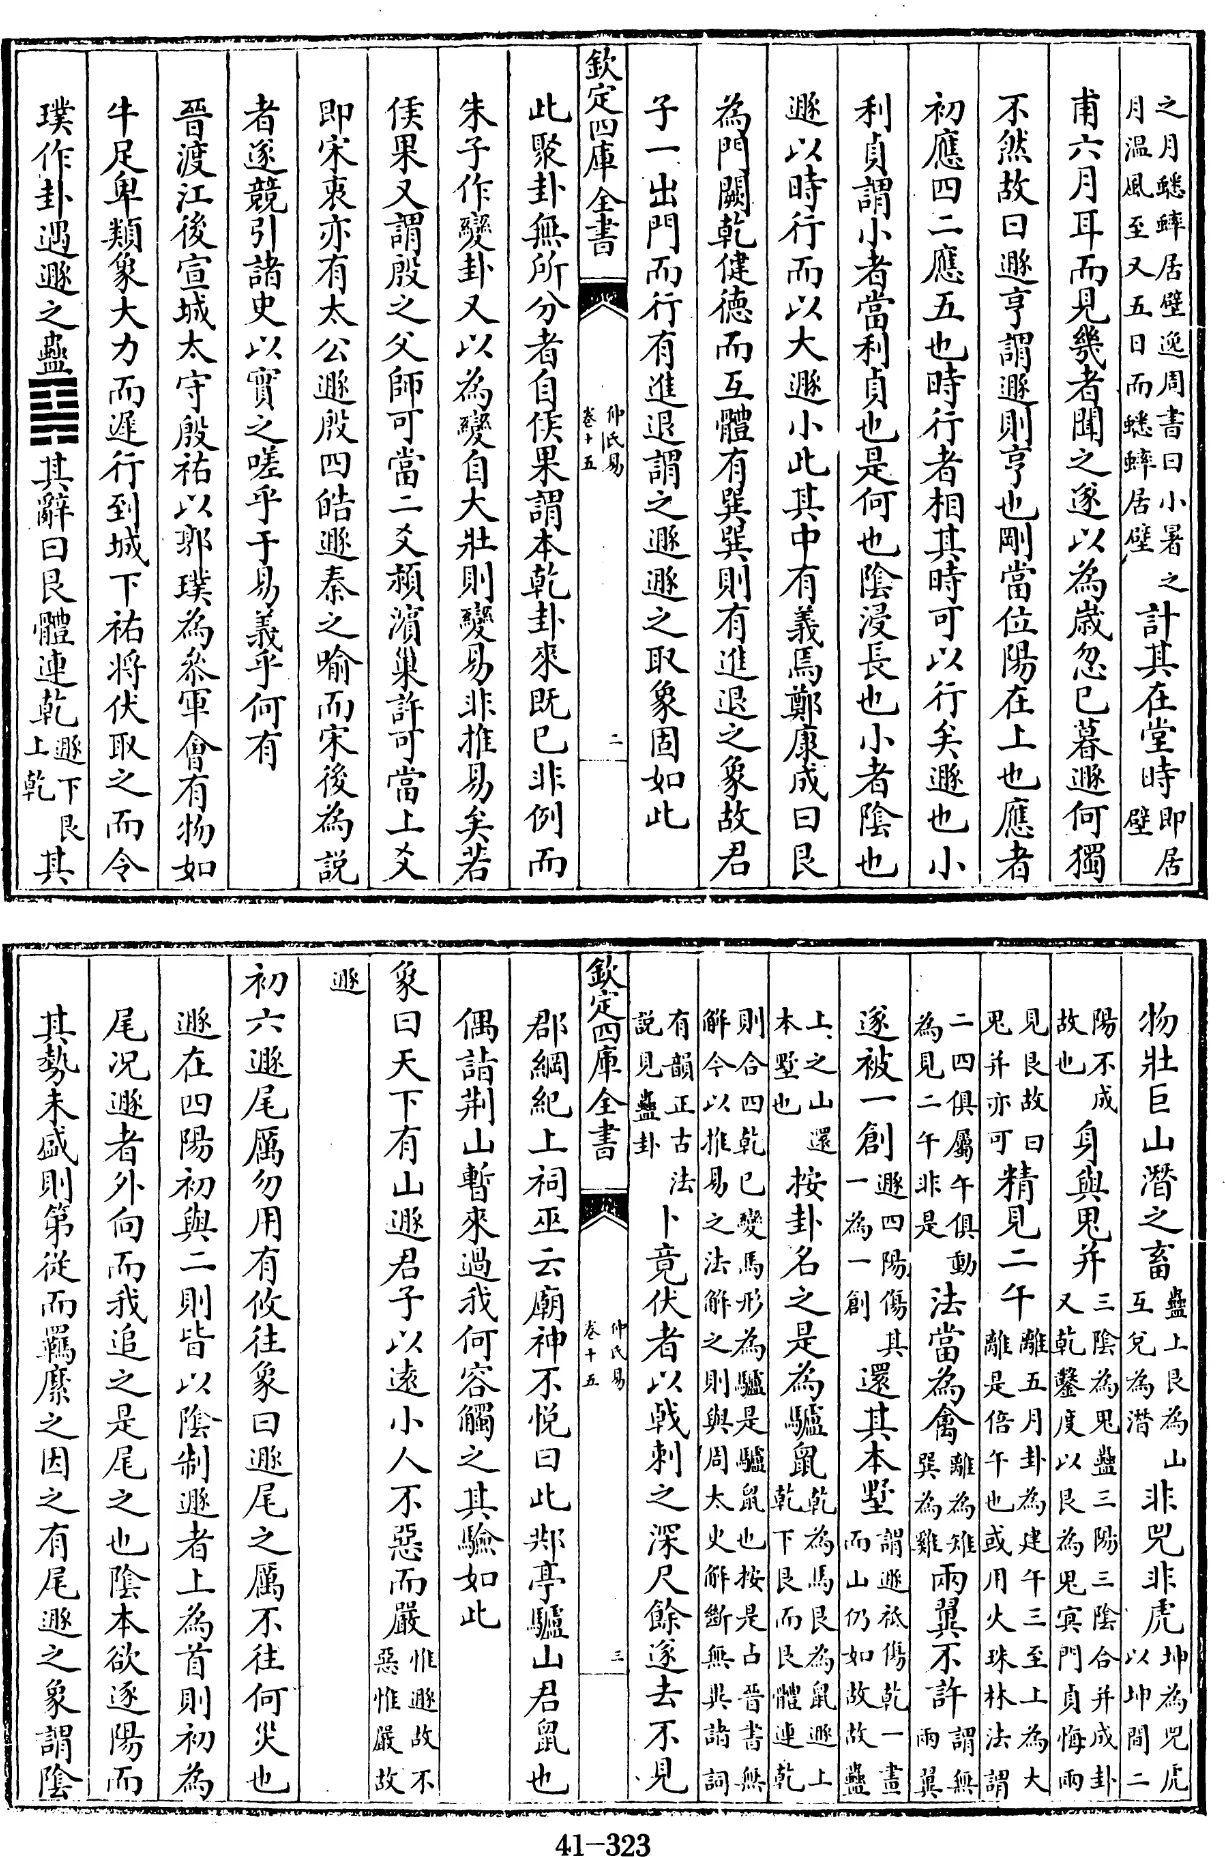 之月蟋蟀居壁逸周書曰小暑之
月溫風至又五日而蟋蟀居壁
計其在堂時
即居
壁
甫六月耳而見幾者聞之遂以為歲忽已暮遯何獨
不然故曰遯亨謂遯則亨也剛當位陽在上也應者
初應四二應五也時行者相其時可以行矣遯也小
利貞謂小者當利貞也是何也陰浸長也小者陰也
遯以時行而以大遯小此其中有義焉鄭康成曰艮
為門闕乾健德而互體有巽巽則有進退之象故君
子一出門而行有進退謂之遯遯之取象固如此
欽定四庫全書
仲氏易
卷十五
二
此聚卦無所分者自侯果謂本乾卦來既已非例而
朱子作變卦又以為變自大壯則變易非推易矣若
侯果又謂殷之父師可當二爻潁濱巢許可當上爻
即宋衷亦有太公遯殷四皓遯秦之喻而宋後為說
者遂競引諸史以實之嗟乎于易義乎何有
晉渡江後宣城太守殷祐以郭璞為參軍會有物如
牛足卑類象大力而遲行到城下祐將伏取之而令
璞作卦遇遯之蠱䷠其辭曰艮體連乾
遯下艮
上乾
其
物壯巨山潛之畜
蠱上艮為山
互兌為潛
非兕非虎
坤為兕虎
以坤間二
陽不成
故也
身與鬼并
三陰為鬼蠱三陽三陰合并成卦
又乾鑿度以艮為鬼冥門貞悔兩
見艮故曰
鬼并亦可
精見二午
離五月卦為建午三至上為大
離是倍午也或用火珠林法謂
二四俱屬午俱動
為見二午非是
法當為禽
離為雉
巽為雞
兩翼不許
謂無
兩翼
遂被一創
遯四陽傷其
一為一創
還其本墅
謂遯祗傷乾一畫
而山仍如故故蠱
上之山還
本墅也
按卦名之是為驢鼠
乾為馬艮為鼠遯上
乾下艮而艮體連乾
則合四乾已變馬形為驢是驢鼠也按是占晉書無
解今以推易之法解之則與周太史解斷無異諸詞
有韻正古法
說見蠱卦
卜竟伏者以戟刺之深尺餘遂去不見
欽定四庫全書
仲氏易
卷十五
三
郡綱紀上祠巫云廟神不悅曰此䢼亭驢山君鼠也
偶詣荆山暫來過我何容觸之其驗如此
象曰天下有山遯君子以遠小人不惡而嚴
惟遯故不
惡惟嚴故
遯
初六遯尾厲勿用有攸往象曰遯尾之厲不往何災也
遯在四陽初與二則皆以陰制遯者上為首則初為
尾況遯者外向而我追之是尾之也陰本欲逐陽而
其勢未盛則第從而羈縻之因之有尾遯之象謂陰
41-323